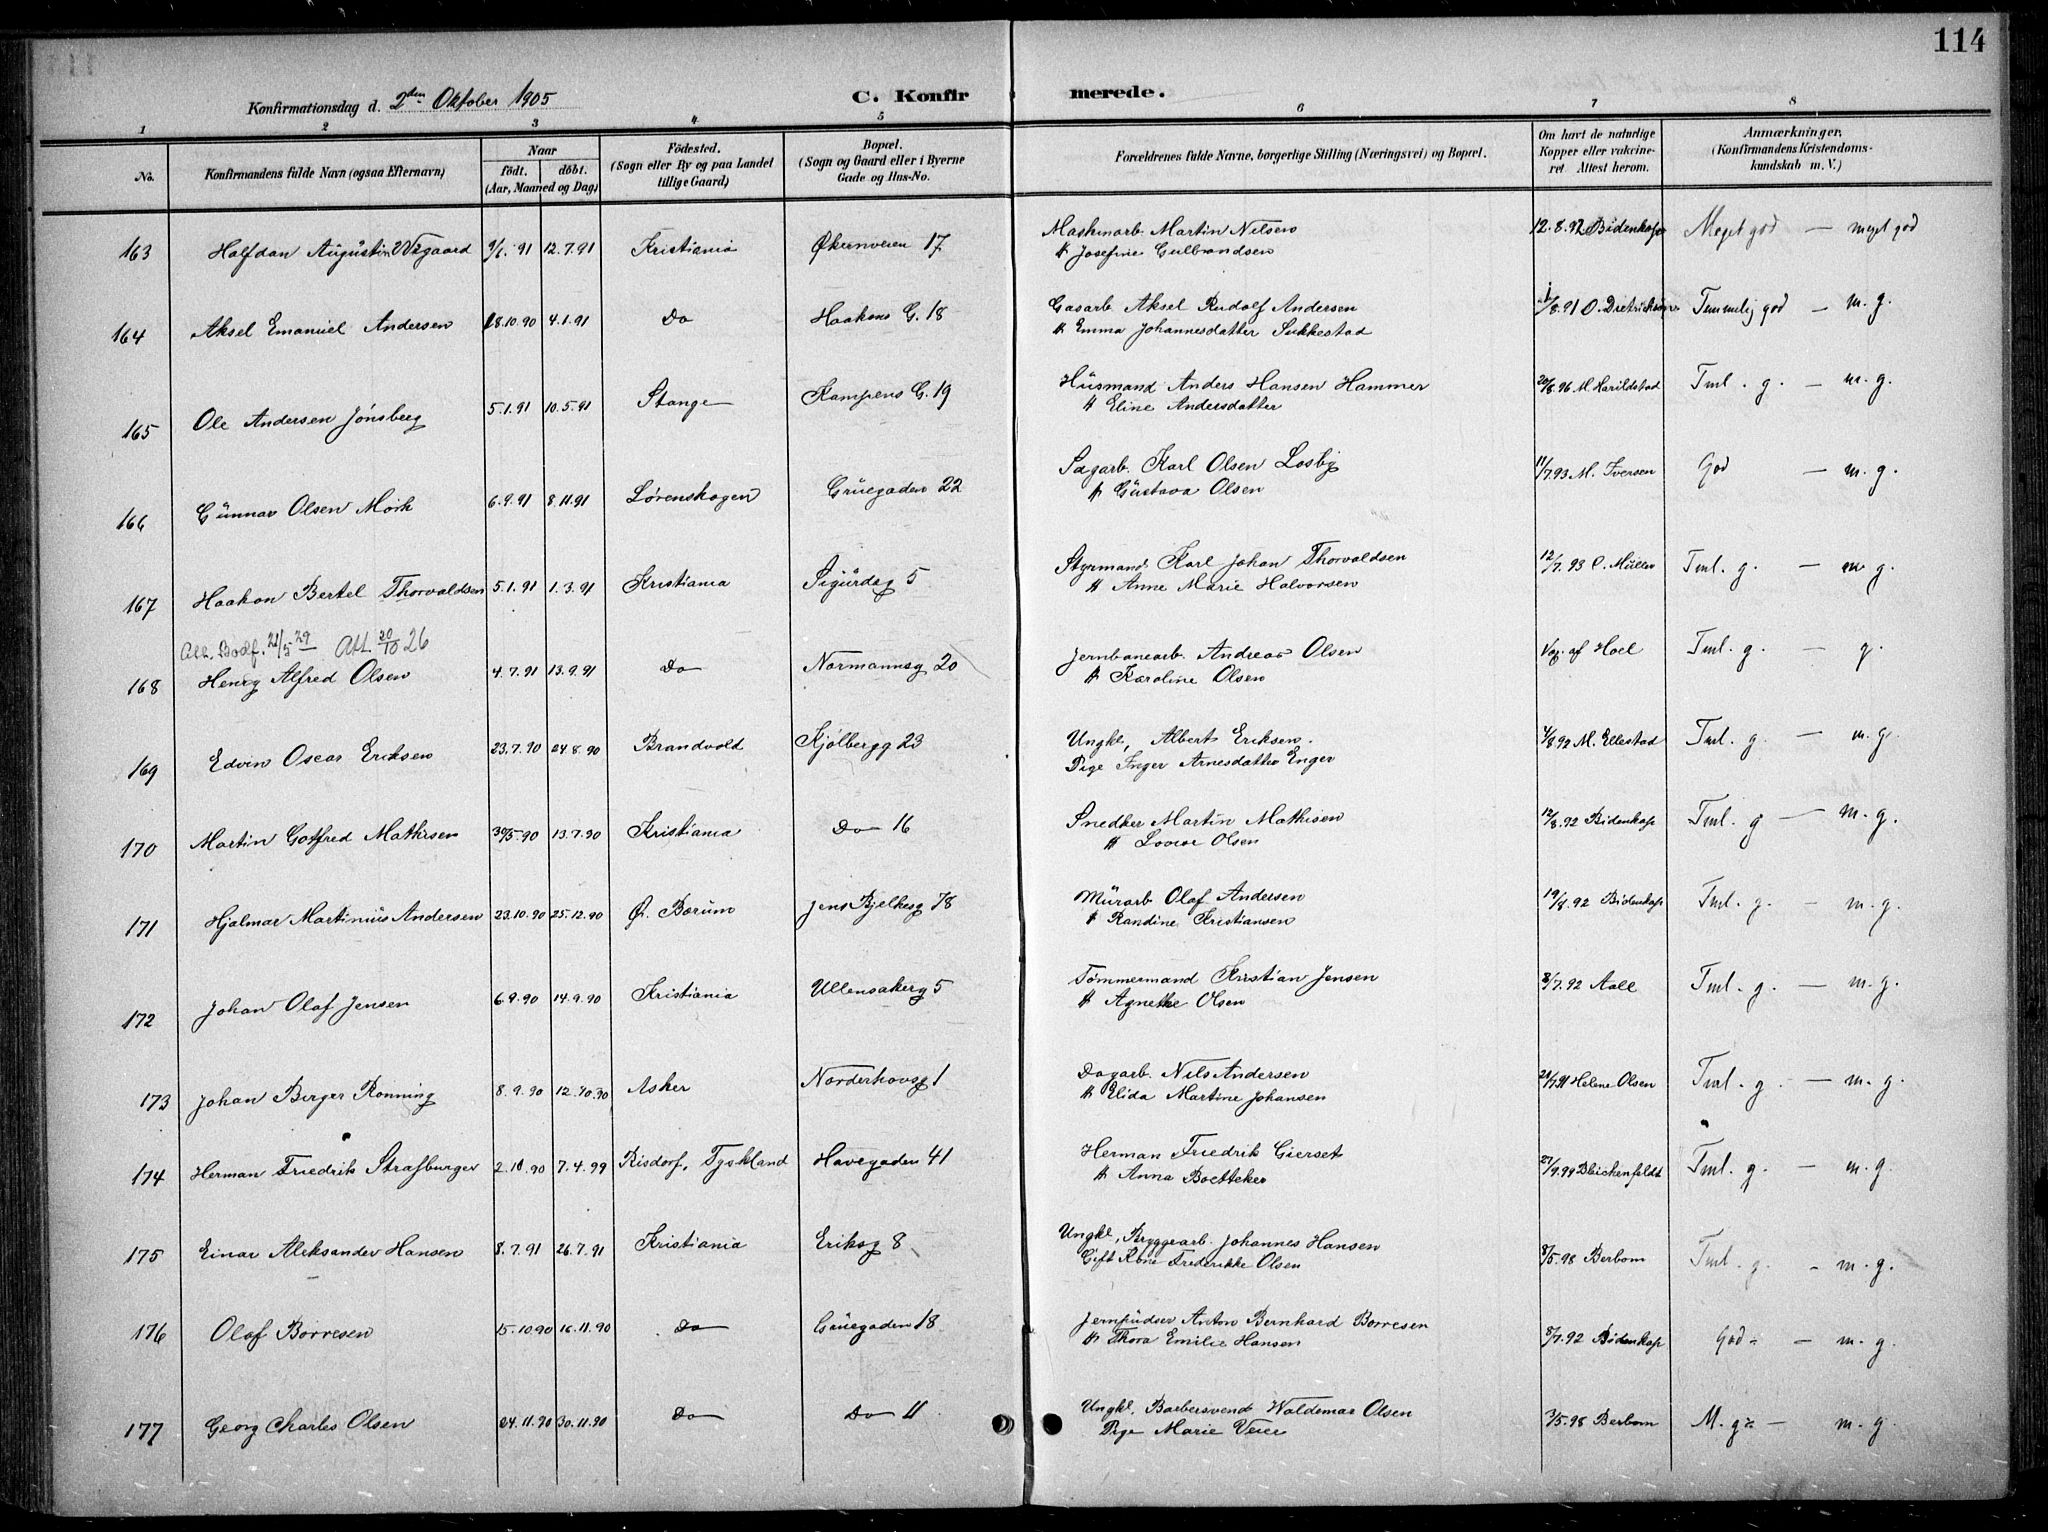 114
Konfirmationsdag d. 2den Oktober 1905
C. Konfirmerede.
1 2 3 4 5 6 7 8
No.
Konfirmandens fulde Navn (ogsaa Efternavn)
Naar
født. døbt.
(Aar, Maaned og Dag)
Fødested.
(Sogn eller By og paa Landet
tillige Gaard)
Bopæl.
(Sogn og Gaard eller i Byerne
Gade og Hus-No.
Forældrenes fulde Navne, borgerlige Stilling (Næringsvei) og Bopæl.
Om havt de naturlige
Kopper eller vakcine-
ret. Attest herom.
Anmærkninger,
(Konfirmandens Kristendoms-
kundskab m. V.)
163 Halfdan Augustin 9/6 91 12.7.91 Kristiania Økernveien 17 Maskinarb. Martin Nilsen 12.8.92 Bidenkap Meget god — meget god
H Josefine Gulbrandsen
164 Aksel Emanuel Andersen 28.10.90 4.1.91 Do Haakons G. 18 Gasarb. Aksel Rudolf Andersen /8.91 O. Dietrichson Temmelig god — m. g.
H Emma Johannesdatter Sukkestad
165 Ole Andersen Jønsberg 5.1.91 10.5.91 Stange Kampens G. 19 Husmand Anders Hansen Hammer 20/8.96 M. Harildstad Tml. g. — m. g.
H Eline Andersdatter
166 Gunnar Olsen Mørk 6.9.91 8.11.91 Lørenskogen Gruegaden 22 Sagarb. Karl Olsen Losby 11/7.93 M. Iversen God — m. g.
H Gustava Olsen
167 Haakon Bertel Thorvaldsen 5.1.91 1.3.91 Kristiania Sigurdsg 5 Styrmand Karl Johan Thorvaldsen 12/7.93 C. Müller Tml. g. — m g.
H Anne Marie Halvorsen
Att. Bodf. 21/5 29 Att. 20/10 26
168 Henry Alfred Olsen 4.7.91 13.9.91 Do Normannsg 20 Jernbanearb. Andreas Olsen Vac. af Hoel Tml. g. — g.
H Karoline Olsen
169 Edvin Oscar Eriksen 23.7.90 24.8.90 Brandvold Kjølbergg 23 Ungkl, Albert Eriksen. /8.92 M. Ellestad Tml. g — m. g.
Pige Inger Arnesdatter Enger
170 Martin Gotfred Mathisen 30/5.90 13.7.90 Kristiania Do 16 Snedker Martin Mathisen 12/8.92 Bidenkap Tml. g — m. g.
H Lovise Olsen
171 Hjalmar Martinius Andersen 23.10.90 25.12.90 Ø. Bærum Jens Bjelkesg 78 Murarb Olaf Andersen 19/8.92 Bidenkap Tml. g. — m. g.
H Randine Kristiansen
172 Johan Olaf Jensen 6.9.90 14.9.90 Kristiania Ullensakerg 5 Tømmermand Kristian Jensen 3/7.92 Aall Tml. g. — m. g.
H Agnethe Olsen
173 Johan Birger Rønning 8.9.90 12.10.90 Asker Norderhovsg 1 Dagarb. Nils Andersen 24/7.91 Helene Olsen Tml. g. — m. g.
H Elida Martine Johansen
174 Herman Friedrik Strafburger 2.10.90 7.4.99 Risdorf, Tyskland Havegaden 41 Herman Friedrik Gierset 27/9.99 Blichenfeldt Tml. g. — m. g
H Anna Boetteker
175 Einar Aleksander Hansen 8.7.91 26.7.91 Kristiania Eriksg 8 Ungkl, Bryggearb. Johannes Hansen 8/5.98 Berbom Tml. g. - m. g.
Gift Kone Frederikke Olsen
176 Olaf Børresen 15.10.90 16.11.90 Do Gruegaden 18 Jernpudser Anton Bernhard Børresen 8/7.92 Bidenkap God - — m. g.
H Thora Emilie Hansen
177 Georg Charles Olsen 24.11.90 30.11.90 Do Do 11 Ungkl. Barbersvend Waldemar Olsen 3/5.98 Berbom M. g — m. g
Pige Marie Veier